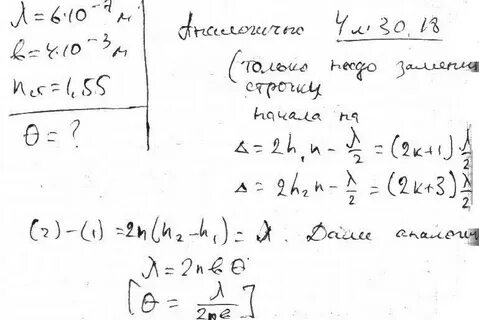 λ = 6·10⁻⁷ м
b = 4·10⁻³ м
n = 1,55
θ = ?
Аналогично 4 м 30.18
(только надо замени
строчки
начала на
Δ = 2h₁n - λ/2 = (2k+1) λ/2
Δ = 2h₂n - λ/2 = (2k+3) λ/2
(2) - (1) = 2n(h₂ - h₁) = λ. Далее аналоги
λ = 2nbθ
[θ = λ/2nb]